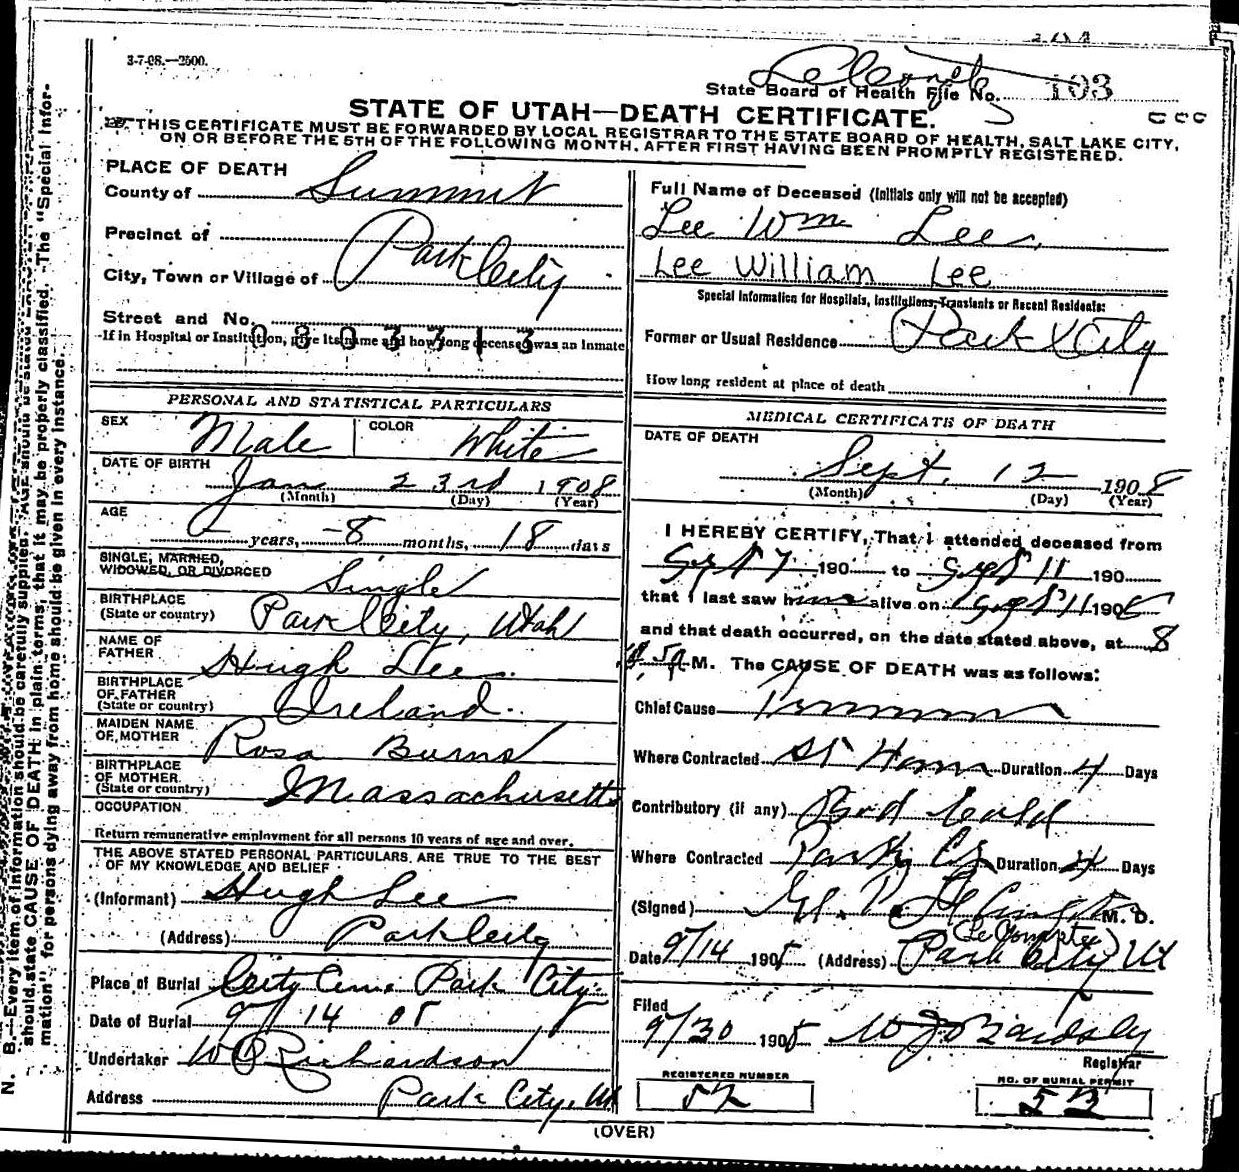 3-7-08.—2500.
State Board of Health File No. 103
STATE OF UTAH—DEATH CERTIFICATE.
THIS CERTIFICATE MUST BE FORWARDED BY LOCAL REGISTRAR TO THE STATE BOARD OF HEALTH, SALT LAKE CITY,
ON OR BEFORE THE 5TH OF THE FOLLOWING MONTH, AFTER FIRST HAVING BEEN PROMPTLY REGISTERED.
PLACE OF DEATH
County of Summit
Precinct of
City, Town or Village of Park City
Street and No.
0803713
If in Hospital or Institution, give its name and how long deceased was an Inmate
PERSONAL AND STATISTICAL PARTICULARS
SEX Male COLOR White
DATE OF BIRTH
Jan 23rd 1908
(Month) (Day) (Year)
AGE
years, 8 months, 18 days
SINGLE, MARRIED,
WIDOWED, OR DIVORCED Single
BIRTHPLACE
(State or country) Park City, Utah
NAME OF
FATHER Hugh Lee
BIRTHPLACE
OF FATHER
(State or country) Ireland.
MAIDEN NAME
OF MOTHER Rosa Burns
BIRTHPLACE
OF MOTHER
(State or country) Massachusetts
OCCUPATION
Return remunerative employment for all persons 10 years of age and over.
THE ABOVE STATED PERSONAL PARTICULARS ARE TRUE TO THE BEST
OF MY KNOWLEDGE AND BELIEF
(Informant) Hugh Lee
(Address) Park City
Place of Burial City Cem Park City
Date of Burial 9/14 08
Undertaker Richardson
Address Park City, Ut
Full Name of Deceased (Initials only will not be accepted)
Lee Wm Lee
Lee William Lee
Special Information for Hospitals, Institutions, Transients or Recent Residents:
Former or Usual Residence Park City
How long resident at place of death
MEDICAL CERTIFICATE OF DEATH
DATE OF DEATH
Sept. 12 1908
(Month) (Day) (Year)
I HEREBY CERTIFY, That I attended deceased from
Sept 7 190 to Sept 11 190
that I last saw him alive on Sept 11 1908
and that death occurred, on the date stated above, at 8
M. The CAUSE OF DEATH was as follows:
Chief Cause
Where Contracted at Home Duration 4 Days
Contributory (if any) Bad Cold
Where Contracted Park City Duration 4 Days
(Signed) M. D.
(LeCompte)
Date 9/14 1908 (Address) Park City Ut
Filed
9/30 1908
Registrar
REGISTERED NUMBER
52
NO. OF BURIAL PERMIT
53
(OVER)
N. B.—Every item of information should be carefully supplied. AGE should be stated
should state CAUSE OF DEATH in plain terms, that it may be properly classified. The "Special Infor-
mation" for persons dying away from home should be given in every instance.